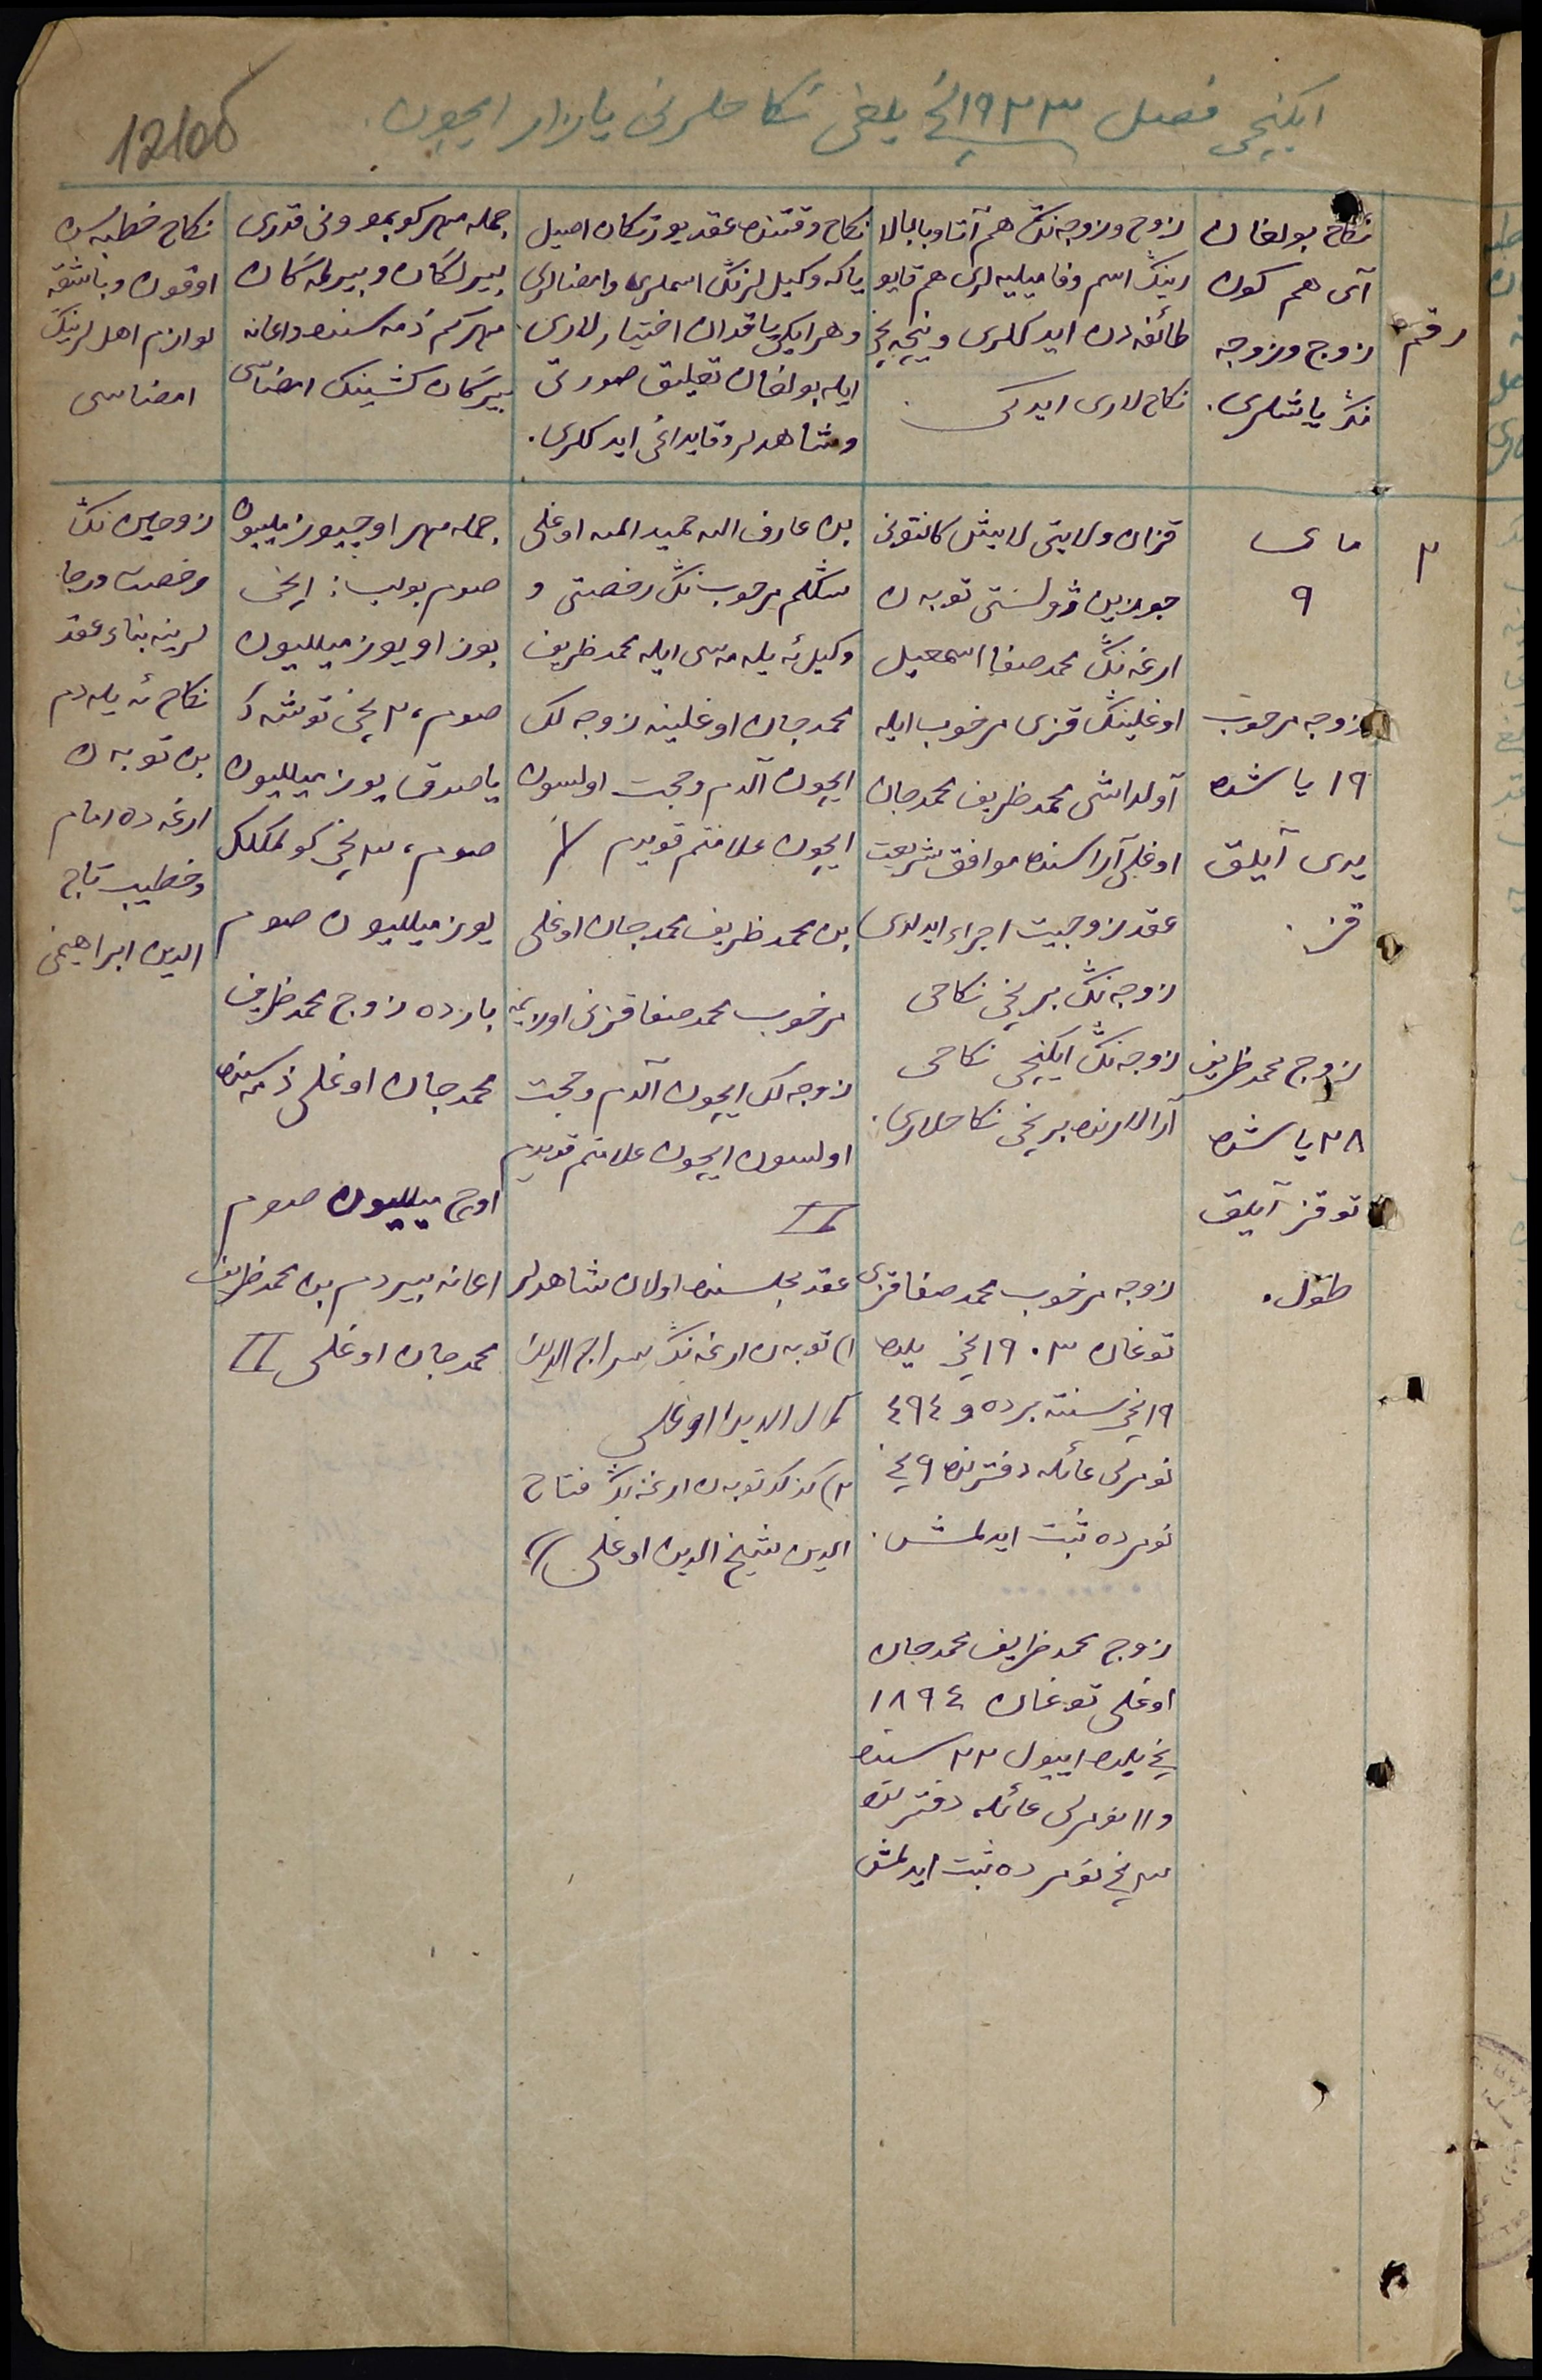 ایکنچی فصل ۱۹۲۳ نچی یلغی نکاحلرنی یازار ایچون.
12/об
رقم
نکاح بولغان
آی هم کون
زوج وزوجه
نڭ یاشلری.
زوج وزوجه نڭ هم آتا وبابالا
رینڭ اسم وفامیلیه لری هم قایو
طائفه دن ایدکلری ونیچه نچی
نکاحلاری ایدکی
نکاح وقتنده عقد یورتکان اصیل
یاکه وکیل لرنڭ اسملری وامضالری
وهر ایکی یاقدان اختیارلاری
ایله بولغان تعلیق صورتی
وشاهدلر وقایداغی ایدکلری.
جمله مهر کوبمو ونی قدری
بیرلگان وبیرلمه گان
مهر کم ذمه سنده واعانه
بیرگان کشینڭ امضاسی
نکاح خطبه سن
اوقون وباشقه
لوازم اهل لرینڭ
امضاسی
۲
مای
۹
زوجه مرخوب
۱۹ یاشده
یدی آیلق
قز.
زوج محمد ظریف
۲۸ یاشده
توقز آیلق
طول.
قزان ولایتی لایش کانتونی
ڤولستی توبه ن
ارغه نڭ محمد صفا اسمعیل
اوغلینڭ قزی مرخوب ایله
آولداشی محمد ظریف محمدجان
اوغلی آراسنده موافق شریعت
عقد زوجیت اجراء ایدلدی
زوجه نڭ برنچی نکاحی
زوجه نڭ ایکنچی نکاحی
آرالارنده برنچی نکاحلاری.
زوجه مرخوب محمد صفا قزی
توغان ۱۹۰۳ نچی یلده
۱۹ نچی سنتەبرده و ٤٩٤
نومرلی عائله دفترنده ۹ نچی
نومرده ثبت ایدلمش.
زوج محمد ظریف محمدجان
اوغلی توغان ۱۸۹٤
نچی یلده اییول ۲۲ سنده
و ۱۱ نومرلی عائله دفترنده
۳ نچی نومرده ثبت ایدلمش
بن عارف الله حمید الله اوغلی
سڭلم مرخوب نڭ رخصتی و
وکیل ئه یله مه سی ایله محمد ظریف
محمدجان اوغلینه زوجه لک
ایچون آلدم وحجت اولسون
ایچون علامتم قویدم
بن محمد ظریف محمدجان اوغلی
مرخوب محمد صفا قزنی اوزیمه
زوجه لک ایچون آلدم وحجت
اولسون ایچون علامتم قویدم
عقد مجلسنده اولان شاهدلر
۱) توبه ن ارغه نڭ سراج الدین
کمال الدین اوغلی
۲) کذلک توبه ن ارغه نڭ فتاح
الدین شیخ الدین اوغلی
جمله مهر اوچیوز میلییون
صوم بولب: ۱ نچی
یوز میلییون
صوم، ۲ نچی توشه ک
یاصدق یوز میلییون
صوم، ۳ نچی کولمکلک
یوز میلییون صوم
بارده زوج محمد ظریف
محمدجان اوغلی ذمه سنده
اوچ میلییون صوم
اعانه بیردم بن محمد ظریف
محمدجان اوغلی
زوجین نڭ
رخصت ورضا
لرینه بناء عقد
نکاح ئه یله دم
بن توبه ن
ارغه ده امام
وخطیب تاج
الدین ابراهیمی